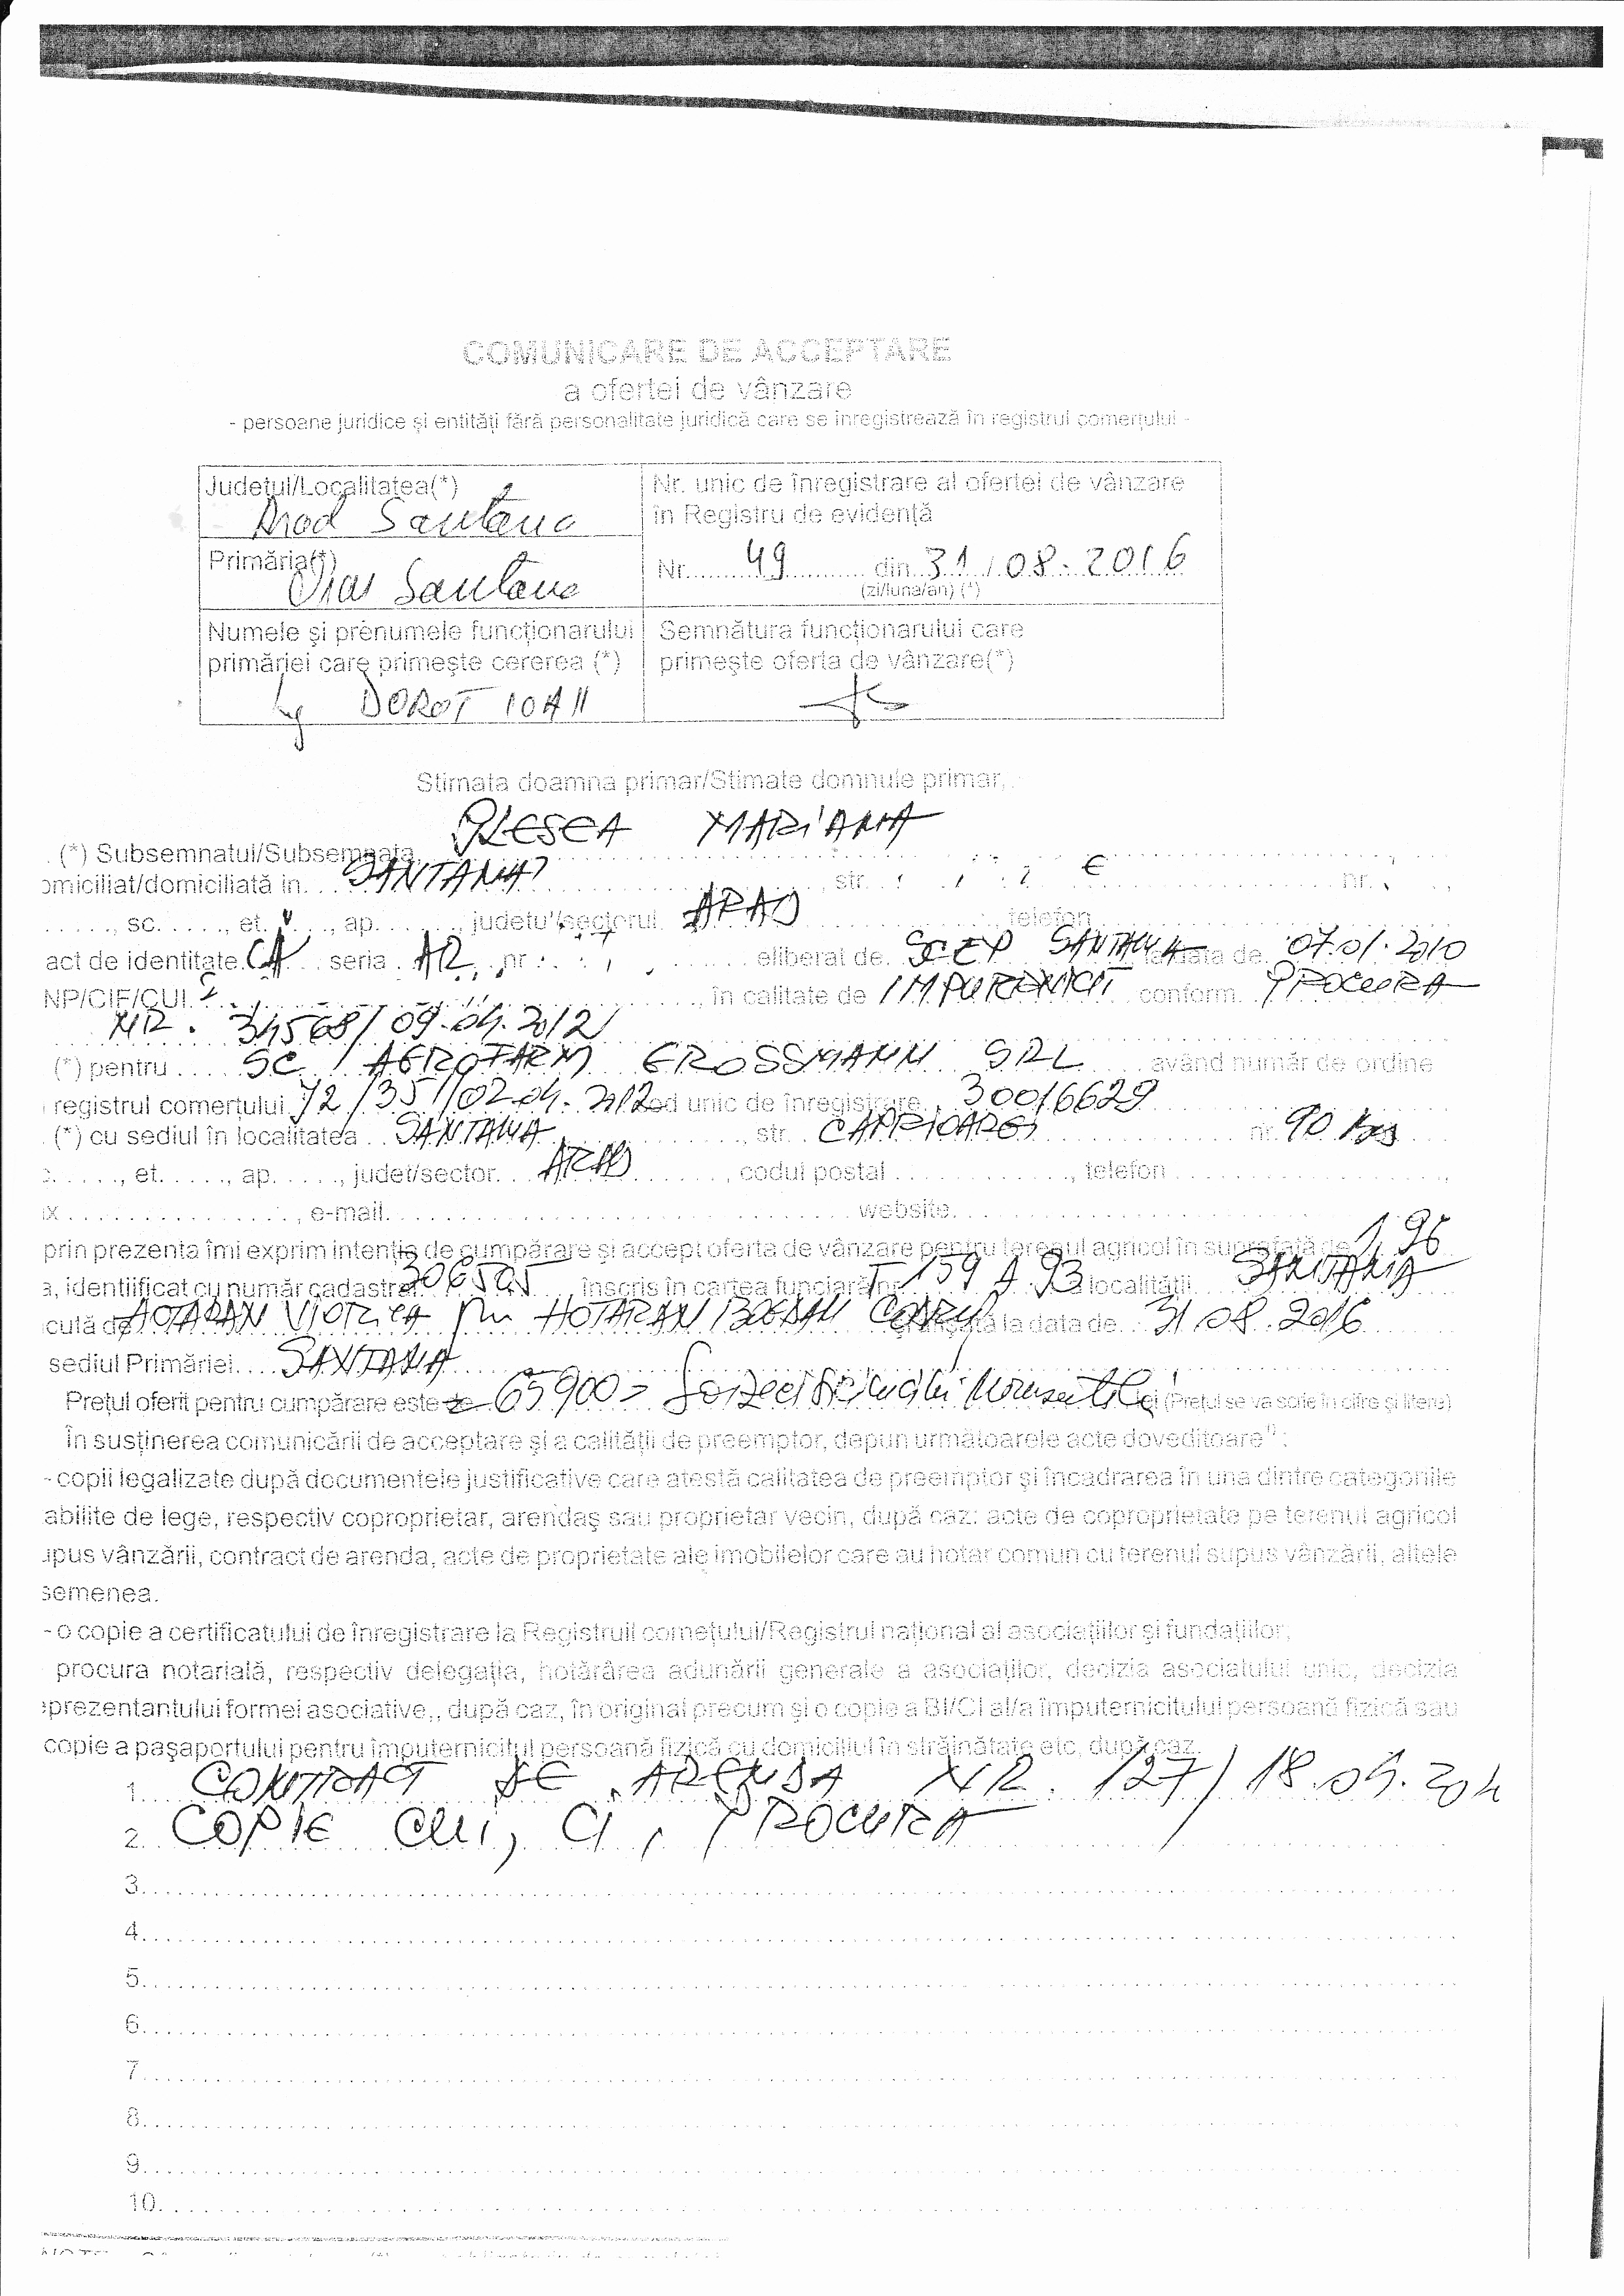 COMUNICARE DE ACCEPTARE
a ofertei de vânzare
- persoane juridice și entităţi fără personalitate juridică care se înregistrează în registrul comerţului -
Judeţul/Localitatea(*)
Arad Santana
Nr. unic de înregistrare al ofertei de vânzare
în Registru de evidenţă
Primăria(*)
Oras Santana
Nr. 49 din 31/08.2016
(zi/luna/an) (*)
Numele şi prenumele funcţionarului
primăriei care primeşte cererea (*)
ing DOROT IOAN
Semnătura funcţionarului care
primeşte oferta de vânzare(*)
Stimata doamna primar/Stimate domnule primar,
PLESEA MARIANA
(*) Subsemnatul/Subsemnata,
omiciliat/domiciliată in. SANTANA, str. nr. ,
, sc. , et. V , ap. , judetu'/sectorul ARAD , telefon
act de identitate CA seria AR nr eliberat de SCEP SANTANA la data de 07.01.2010
NP/CIF/CUI , în calitate de IMPUTERNICIT conform PROCURA
NR. 34568/09.04.2012
(*) pentru SC AGROFARM GROSSMANN SRL având număr de ordine
registrul comerţului J2/351/02.04.2012 cod unic de înregistrare 30016629
(*) cu sediul în localitatea SANTANA , str. CAPRIOAREI nr. 90
, et. , ap. , judet/sector ARAD , codul postal , telefon ,
x , e-mail. website.
prin prezenta îmi exprim intenţia de cumpărare şi accept oferta de vânzare pentru terenul agricol în suprafaţă de 1,96
a, identiificat cu număr cadastral 306505 , înscris în cartea funciară nr T 159 A 93 a localităţii SANTANA
culă de HOTARAN VIORICA prin HOTARAN BOGDAN CODRU şi afişată la data de 31.08.2016
sediul Primăriei SANTANA
Preţul oferit pentru cumpărare este de 65900= lei (Preţul se va scrie în cifre şi litere)
În susţinerea comunicării de acceptare şi a calităţii de preemptor, depun următoarele acte doveditoare¹⁾:
- copii legalizate după documentele justificative care atestă calitatea de preemptor şi încadrarea în una dintre categoriile
abilite de lege, respectiv coproprietar, arendaş sau proprietar vecin, după caz: acte de coproprietate pe terenul agricol
upus vânzării, contract de arenda, acte de proprietate ale imobilelor care au hotar comun cu terenul supus vânzării, altele
semenea.
- o copie a certificatului de înregistrare la Registruil comeţului/Registrul naţional al asociaţiilor şi fundaţiilor;
procura notarială, respectiv delegaţia, hotărârea adunării generale a asociaţilor, decizia asociatului unic, decizia
eprezentantului formei asociative,, după caz, în original precum şi o copie a BI/CI al/a împuternicitului persoană fizică sau
copie a paşaportului pentru împuternicitul persoană fizică cu domiciliul în străinătate etc, după caz.
1. CONTRACT DE ARENDA NR. 127/18.04.2014
2. COPIE CUI, CI, PROCURA
3.
4.
5.
6.
7.
8.
9.
10.